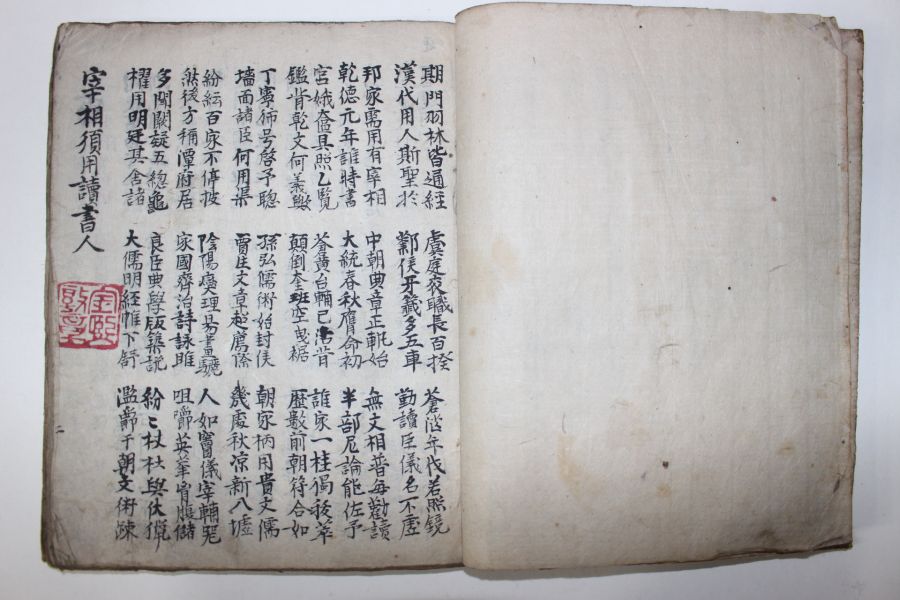 期門羽林皆通經
虞庭夜職長百揆
蒼年代若照鏡
漢代用人斯聖於
鄴侯牙籤多五車
勤讀臣儀名不虛
邦家需用有宰相
中朝典章正軌始
無文相普每勸讀
乾德元年誰時書
大統春秋膺命初
半部尼論能佐予
宮娥奩具照乙覽
蒼黃台輔已昔
誰家一桂獨拔萃
鑑背乾文何義歟
顛倒奎班空曳裾
歷數前朝符合如
丁寧佈号啓予聰
孫弘儒術始封侯
朝家柄用貴文儒
墻面諸臣何用渠
賈匡文章起薦除
幾處秋凉新入墟
紛紜百家不停披
陰陽燮理易畫驪
人如竇儀宰輔器
然後方稱潭府居
家國齊治詩詠雎
咀嚼英華胷膓儲
多聞闕疑五總龜
良臣典學版築說
紛〻杖杜與伏獵
擢用明廷其舍諸
大儒明經帷下舒
濫爵于朝文術疎
宰相須用讀書人